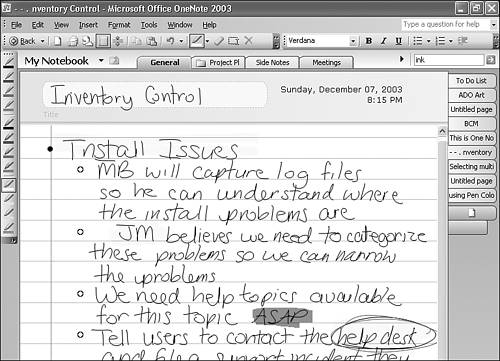 - - . nventory Control - Microsoft Office OneNote 2003
File Edit View Insert Format Tools Window Help
Type a question for help
Back
Verdana
B I U
My Notebook
General
Project Pl
Side Notes
Meetings
ink
Inventory Control
Title
Sunday, December 07, 2003
8:15 PM
Install Issues
MB will capture log files
so he can understand where
the install problems are
JM believes we need to categorize
these problems so we can narrow
the problems
We need help topics available
for this topic ASAP
Tell users to contact the help desk
and file a support incident they
To Do List
ADO Art
Untitled page
BCM
This is One No
- - . nventory
Selecting multi
Untitled page
using Pen Colo